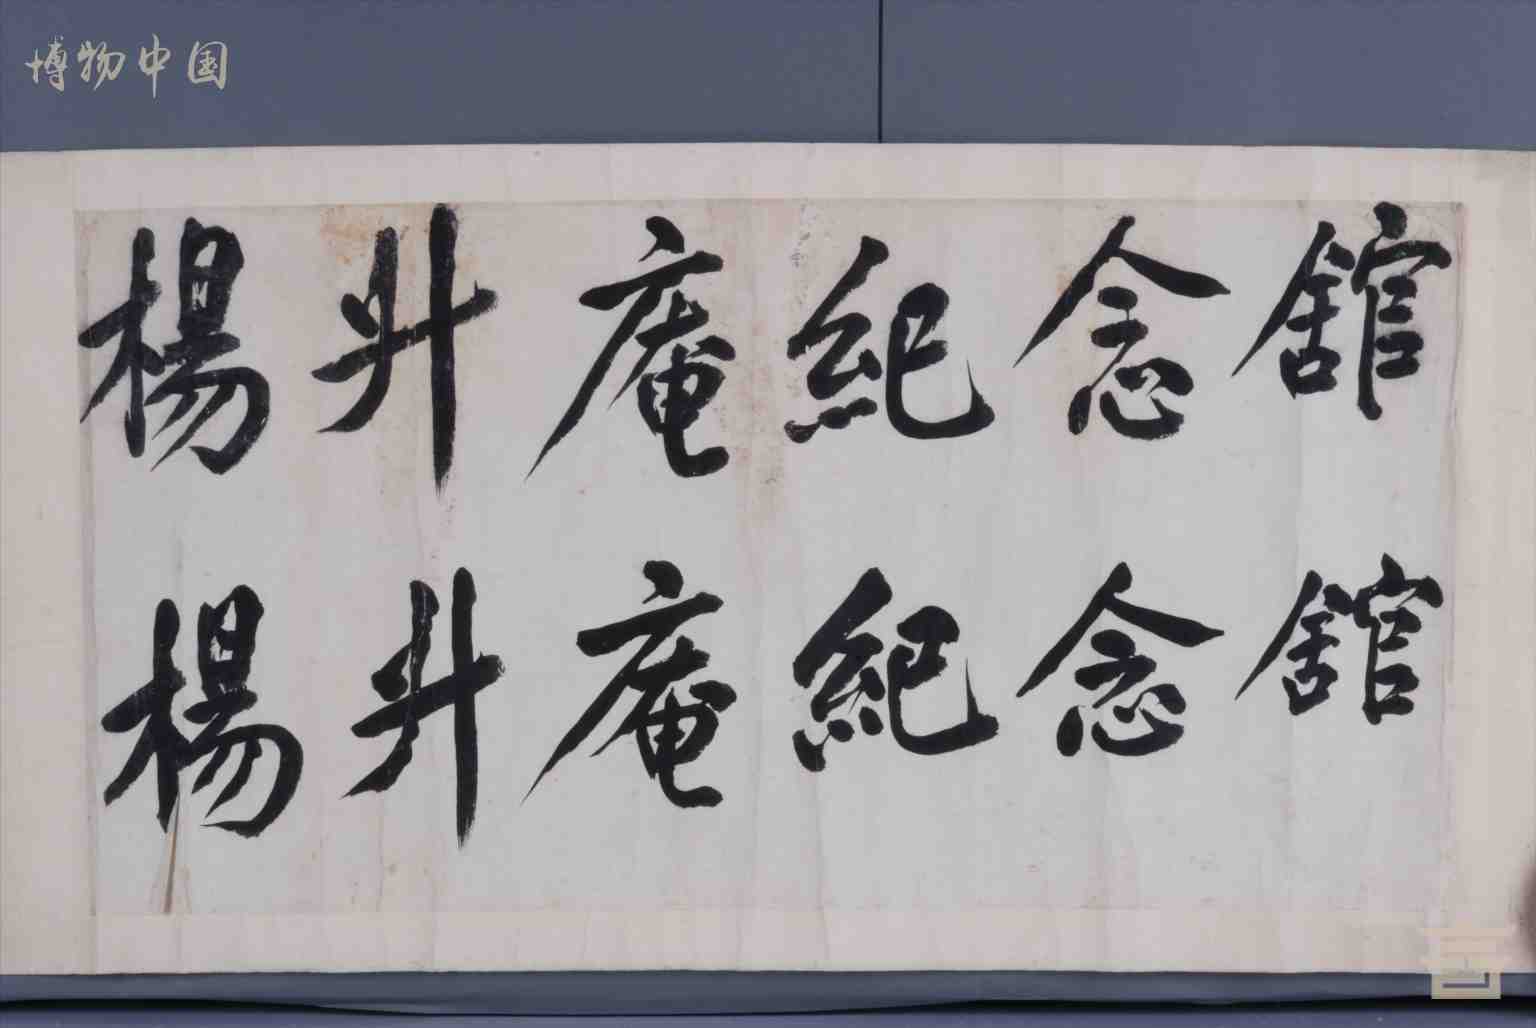 博物中国
楊升庵紀念舘
楊升庵紀念舘